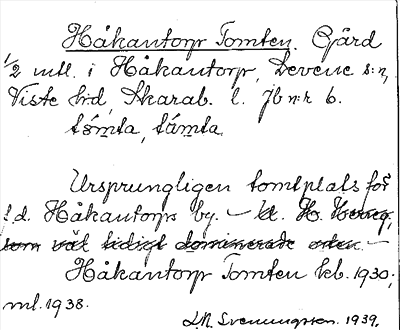 Håkantorp Tomten. Gård
1/2 mtl. i Håkantorp, Levene s:n,
Viste hd, Skarab. l. Jb n:r 6.
tòmta, támta
Ursprungligen tomtplats för
f.d. Håkantorps by. – 
som väl tidigt dominerade orten. –
Håkantorp Tomten kb. 1930;
ml. 1938.
Svenningsson. 1939.